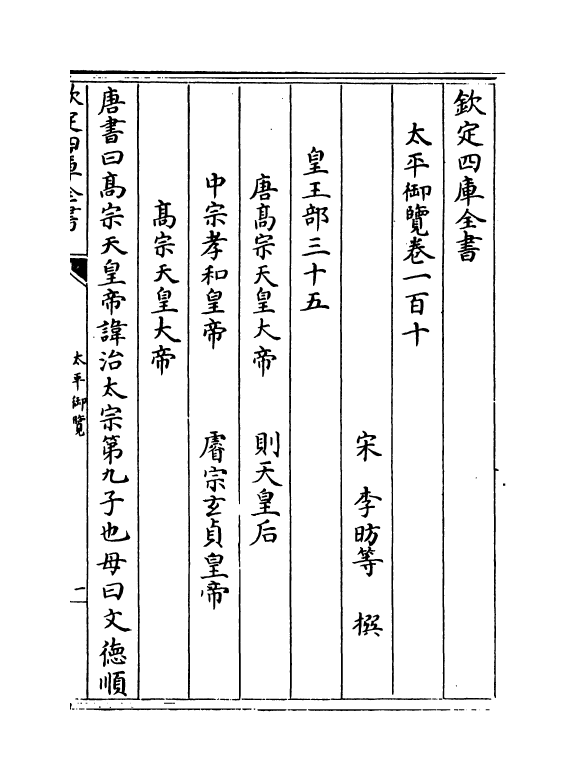 欽定四庫全書
太平御覽卷一百十
宋 李昉等 撰
皇王部三十五
唐髙宗天皇大帝 則天皇后
中宗孝和皇帝 睿宗玄貞皇帝
髙宗天皇大帝
唐書曰髙宗天皇帝諱治太宗第九子也母曰文德順
欽定四庫全書
太平御覽
一